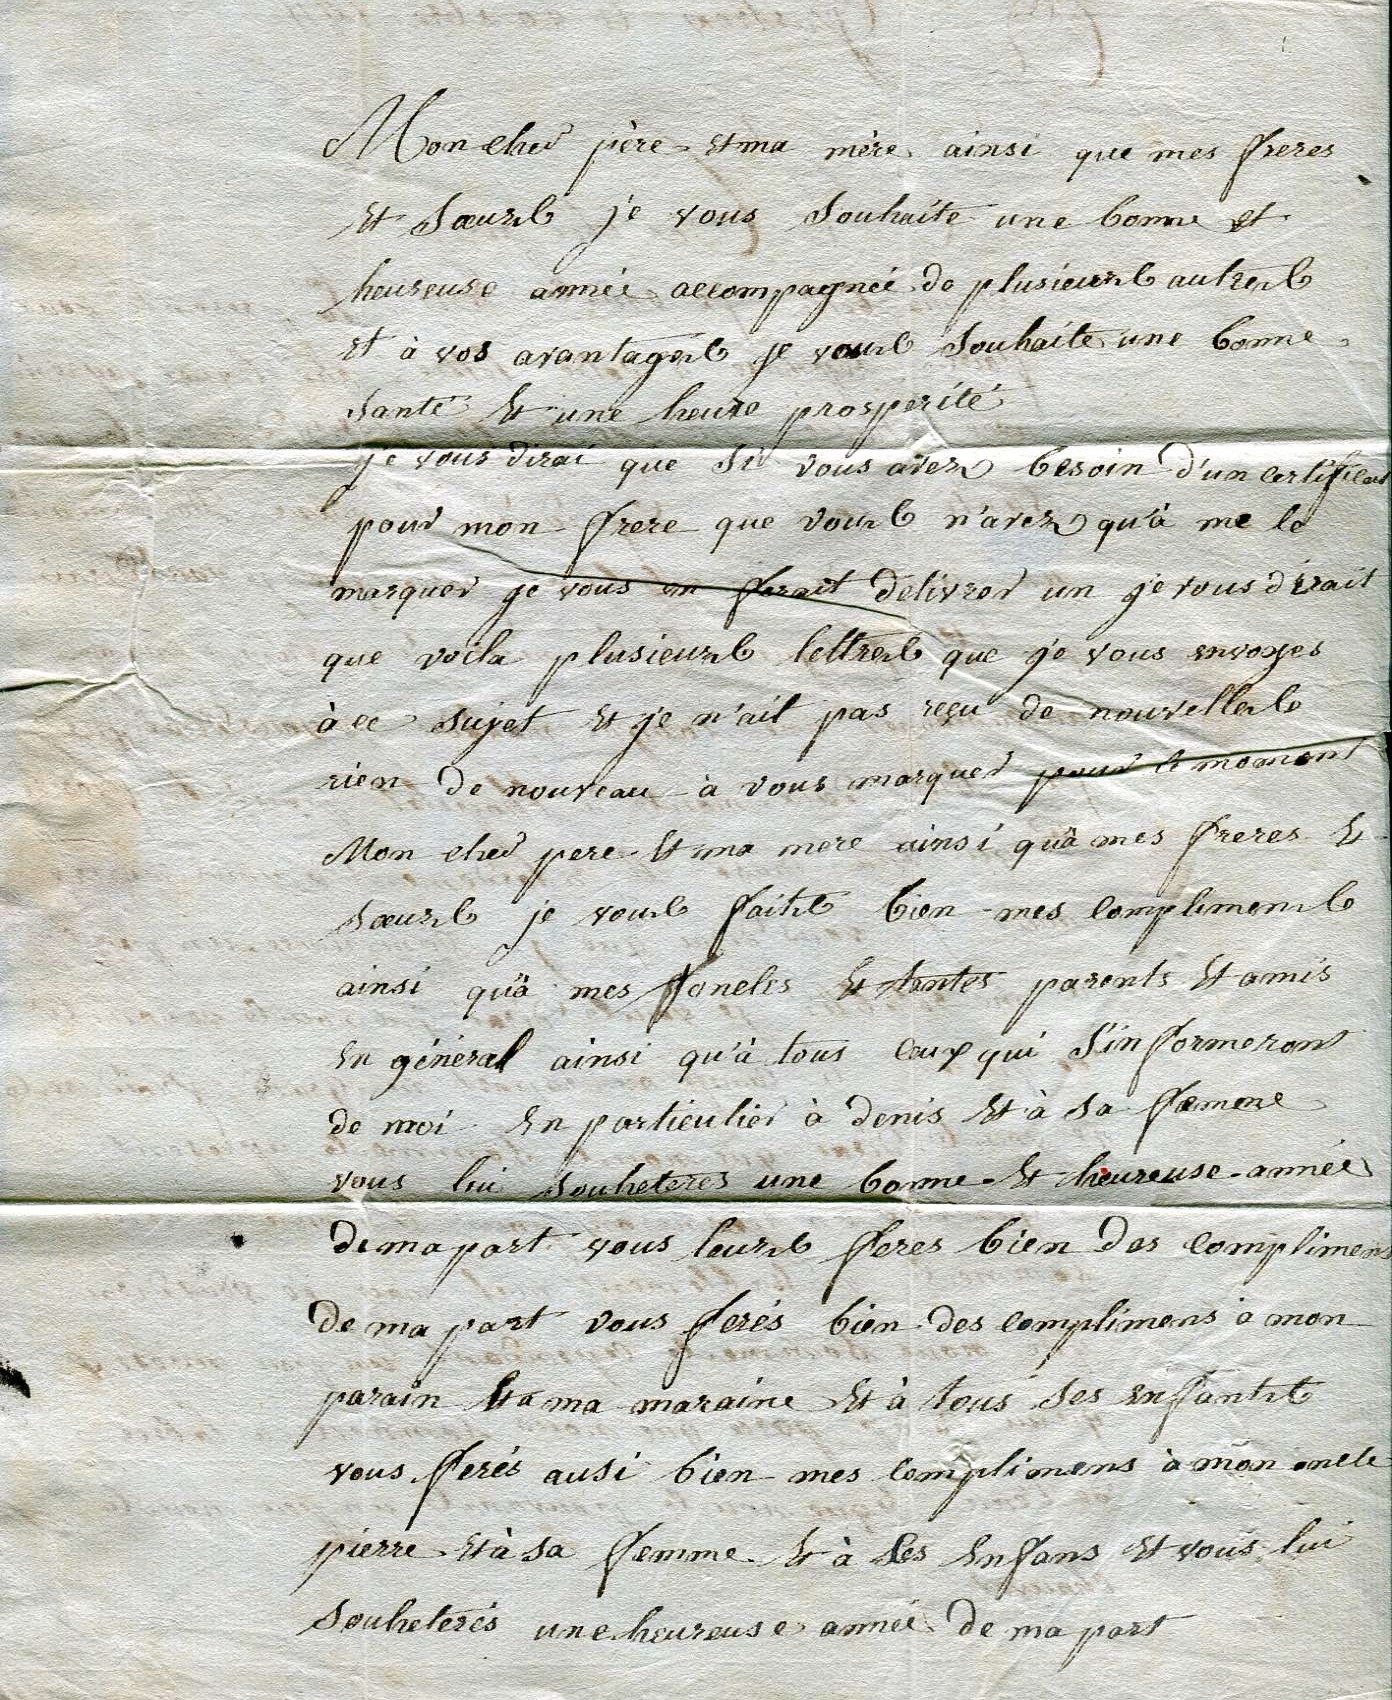 Mon cher père et ma mère ainsi que mes freres
et sœurs je vous souhaite une bonne et
heureuse année accompagnée de plusieurs autres
et à vos avantages je vous souhaite une bonne
santé et une heure prosperité
je vous dirai que si vous avez besoin d'un certificat
pour mon frere que vous n'avez qu'à me le
marquer je vous en ferait delivrer un je vous dirait
que voila plusieurs lettres que je vous envoyes
à ce sujet et je n'ait pas reçu de nouvelles
rien de nouveau à vous marquer pour le moment
Mon cher pere et ma mere ainsi qu'à mes freres et
sœurs je vous faits bien mes compliments
ainsi qu'à mes foncles et tentes parents et amis
en général ainsi qu'à tous ceux qui s'informeront
de moi en particulier à denis et à sa femme
vous lui souheteres une bonne et heureuse année
de ma part vous leurs feres bien des complimens
de ma part vous ferés bien des complimens à mon
parain et a ma maraine et à tous ses enfants
vous ferés ausi bien mes complimens à mon oncle
pierre et à sa femme et à ses enfans et vous lui
souheterés une heureuse année de ma part